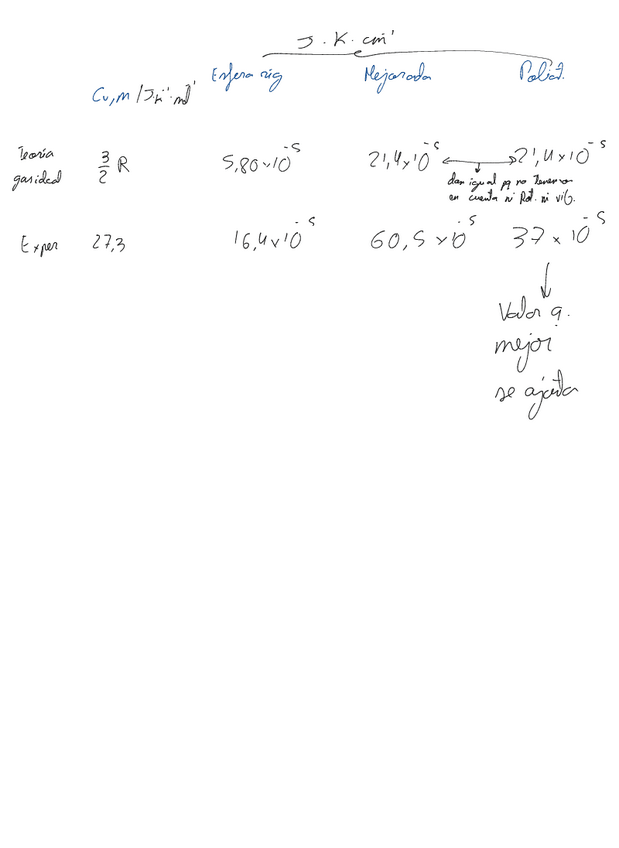 J. K. cm⁻¹
Esfera ríg Mejorada Poliat.
Cv,m / J K⁻¹ mol⁻¹
Teoría gas ideal 3/2 R 5,80 x 10⁻⁵ 21,4 x 10⁻⁵ 21,4 x 10⁻⁵
dan igual pq no tenemos
en cuenta ni Rot. ni vib.
Exper 27,3 16,4 x 10⁻⁵ 60,5 x 10⁻⁵ 37 x 10⁻⁵
Valor q.
mejor
se ajusta